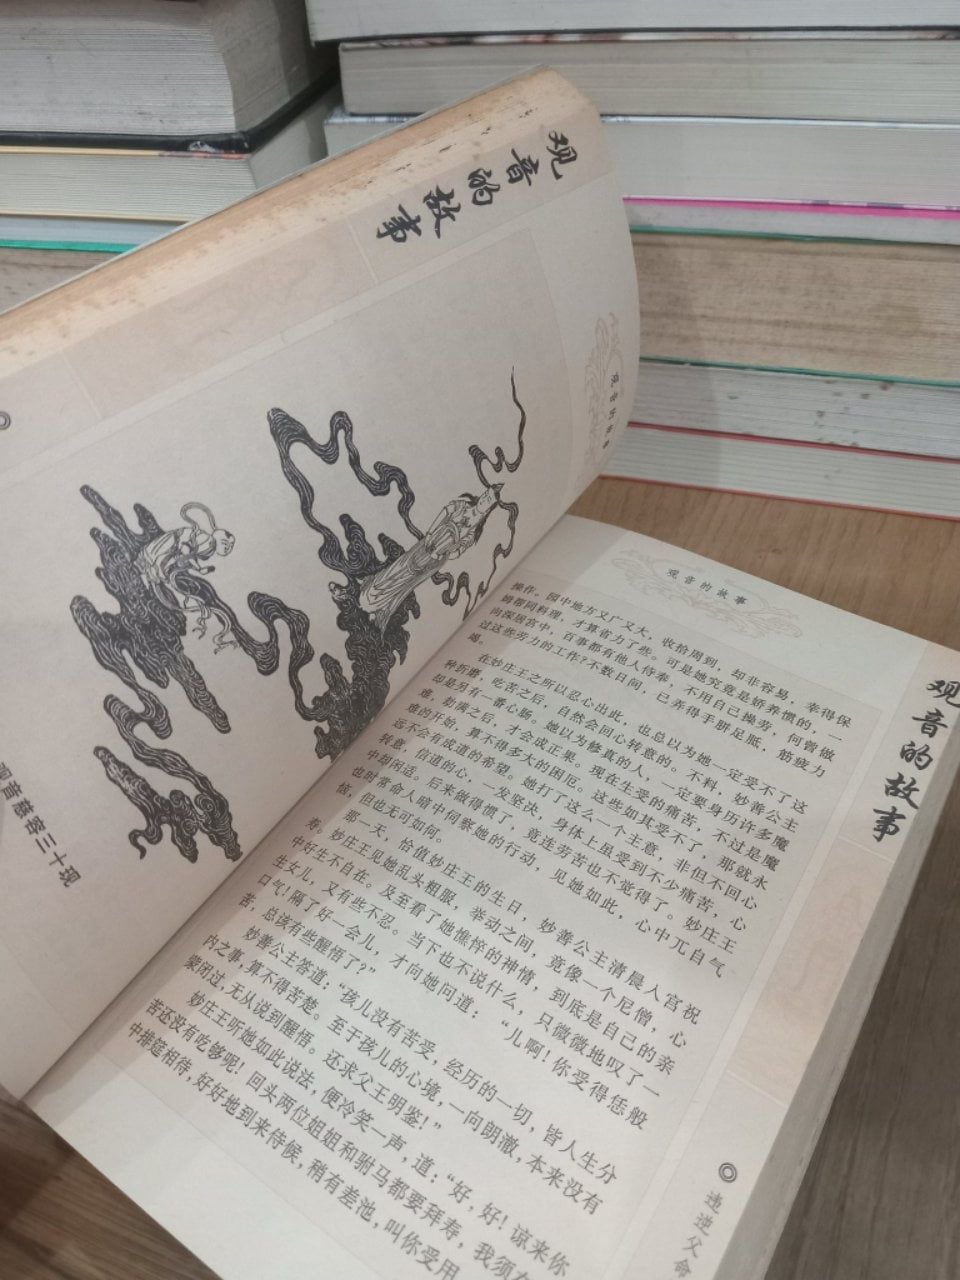 观音的故事
观音的故事
观音慈容三十现
观音的故事
操作。园中地方又广又大，收拾周到，却非容易，幸得保
姆帮同料理，才算省力了些。可是她究竟是娇养惯的，一
向深居宫中，百事都有他人侍奉，不用自己操劳，何曾做
过这些劳力的工作?不数日间，已弄得手胼足胝，筋疲力
竭。
在妙庄王之所以忍心出此，也总以为她一定受不了这
种折磨，吃苦之后，自然会回心转意的。不料，妙善公主
却是另有一番心肠。她以为修真的人，一定要身历许多魔
难，劫满之后，才会成正果。现在生受的痛苦，不过是魔
难的开始，算不得多大的困厄。这些如其受不了，那就永
远不会有成道的希望。她打了这么一个主意，非但不回心
转意，信道的心，一发坚决，身体上虽受到不少痛苦，心
中却闲适。后来做得惯了，竟连劳苦也不觉得了。妙庄王
也时常命人暗中伺察她的行动，见她如此，心中兀自气
恼，但也无可如何。
那一天，恰值妙庄王的生日，妙善公主清晨入宫祝
寿。妙庄王见她乱头粗服，举动之间，竟像一个尼僧，心
中好生不自在。及至看了她憔悴的神情，到底是自己的亲
生女儿，又有些不忍。当下也不说什么，只微微地叹了一
口气!隔了好一会儿，才向她问道：“儿啊!你受得恁般
苦，总该有些醒悟了?”
妙善公主答道：“孩儿没有苦受，经历的一切，皆人生分
内之事，算不得苦楚。至于孩儿的心境，一向朗澈，本来没有
蒙闭过，无从说到醒悟。还求父王明鉴!”
妙庄王听她如此说法，便冷笑一声，道：“好，好!谅来你
苦还没有吃够呢!回头两位姐姐和驸马都要拜寿，我须
中排筵相待，好好地到来侍候，稍有差池，叫你受用
观音的故事
违逆父命